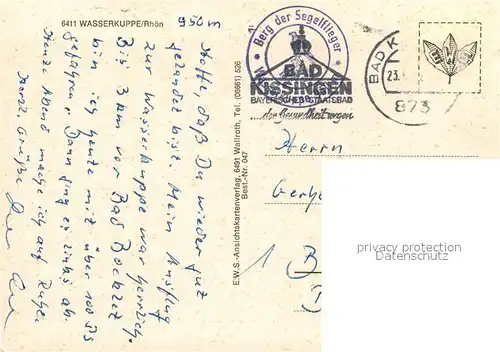 6411 WASSERKUPPE/Rhön
Hoffe, daß Du wieder gut
gelandet bist. Mein Ausflug
zur Wasserkuppe war herrlich.
Bis 3 km vor Bad Bocklet
bin ich heute mit über 100 Sa
gefahren. Dann ging es links ab.
Heute Abend mache ich auf Kultur.
Herzl. Grüße
E.W.S.-Ansichtskartenverlag, 6491 Wallroth, Tel. (06661) 526
Best.-Nr. 047
Berg der Segelflieger
BAD
KISSINGEN
BAYERISCHES STAATSBAD
...der Gesundheit wegen
BAD K
23.
873
Herrn
Gerh
privacy protection
www.oldthing.net